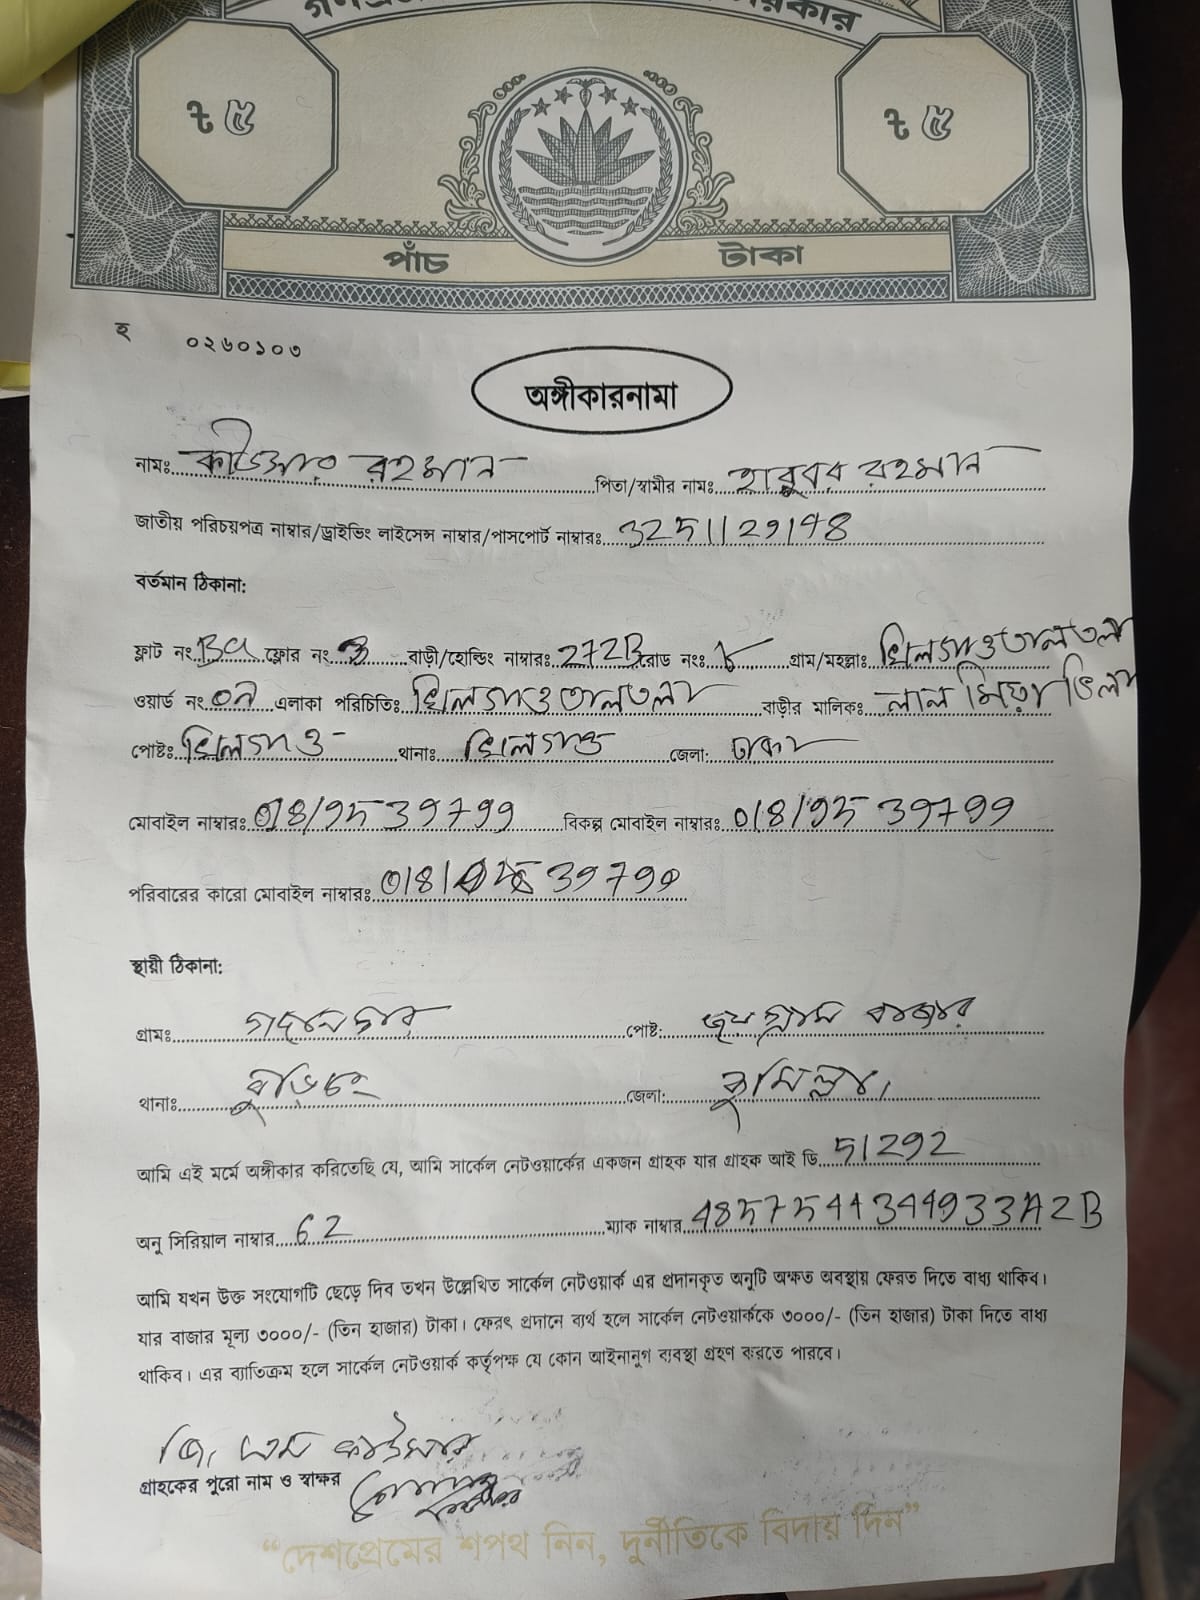 ৳ ৫ ৳ ৫
পাঁচ টাকা
হ ০২৬০১০৩
অঙ্গীকারনামা
নামঃ কাউসার রহমান পিতা/স্বামীর নামঃ হাবুবর রহমান
জাতীয় পরিচয়পত্র নাম্বার/ড্রাইভিং লাইসেন্স নাম্বার/পাসপোর্ট নাম্বারঃ
বর্তমান ঠিকানা:
ফ্লাট নং ফ্লোর নং 3 বাড়ী/হোল্ডিং নাম্বারঃ 272B রোড নংঃ গ্রাম/মহল্লাঃ খিলগাও তালতলা
ওয়ার্ড নং এলাকা পরিচিতিঃ খিলগাও তালতলা বাড়ীর মালিকঃ লাল মিয়া ভিলা
পোষ্টঃ খিলগাও থানাঃ খিলগাও জেলা: ঢাকা
মোবাইল নাম্বারঃ বিকল্প মোবাইল নাম্বারঃ
পরিবারের কারো মোবাইল নাম্বারঃ
স্থায়ী ঠিকানা:
গ্রামঃ পোষ্ট: বাজার
থানাঃ বুড়িচং জেলা: কুমিল্লা।
আমি এই মর্মে অঙ্গীকার করিতেছি যে, আমি সার্কেল নেটওয়ার্কের একজন গ্রাহক যার গ্রাহক আই ডি 51292
অনু সিরিয়াল নাম্বার 62 ম্যাক নাম্বার 4857544344933A2B
আমি যখন উক্ত সংযোগটি ছেড়ে দিব তখন উল্লেখিত সার্কেল নেটওয়ার্ক এর প্রদানকৃত অনুটি অক্ষত অবস্থায় ফেরত দিতে বাধ্য থাকিব।
যার বাজার মূল্য ৩০০০/- (তিন হাজার) টাকা। ফেরৎ প্রদানে ব্যর্থ হলে সার্কেল নেটওয়ার্ককে ৩০০০/- (তিন হাজার) টাকা দিতে বাধ্য
থাকিব। এর ব্যাতিক্রম হলে সার্কেল নেটওয়ার্ক কর্তৃপক্ষ যে কোন আইনানুগ ব্যবস্থা গ্রহণ করতে পারবে।
জি, এম কাউসার
গ্রাহকের পুরো নাম ও স্বাক্ষর
“দেশপ্রেমের শপথ নিন, দুর্নীতিকে বিদায় দিন”